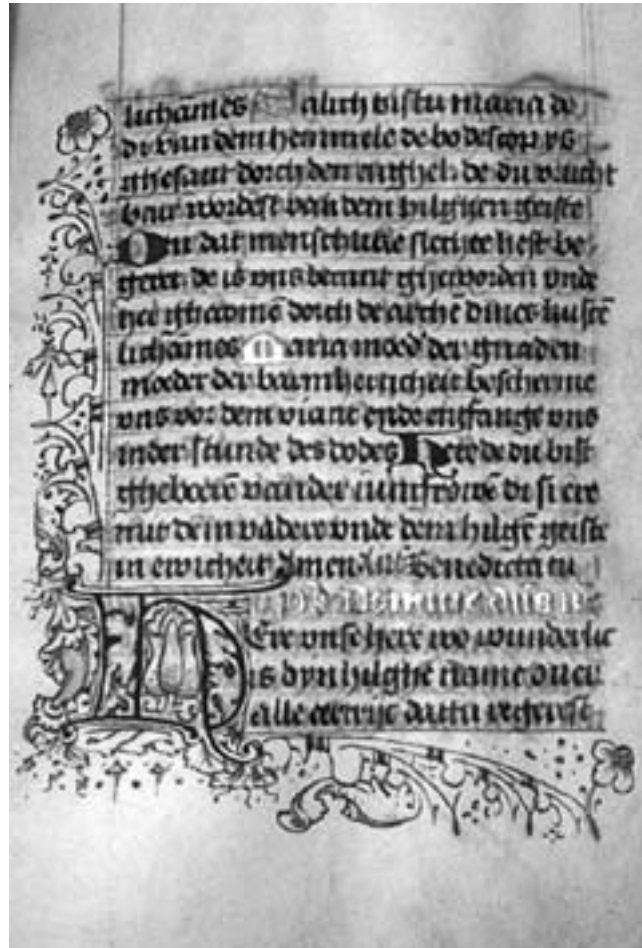 lichames Salich bistu maria de
du van dem hemmele de bodescop ys
ghesant dorch den enghel de du vrucht
bar wordest van dem hilghen geiste
dat menschlike
de is uns bereit gheworden unde
dorch de dines
lichames Maria moed' der gnaden
moeder der barmherticheit bescherme
uns vor dem viant ende entfange uns
in der stunde des dodes Here de du bist
gheborē van der iunfrowē di si ere
mit dem vader unde dem hilgē geiste
in ewicheit Amen Benedicta tu
Ere unse here wo wunderlic
is dyn hilghe name over
alle